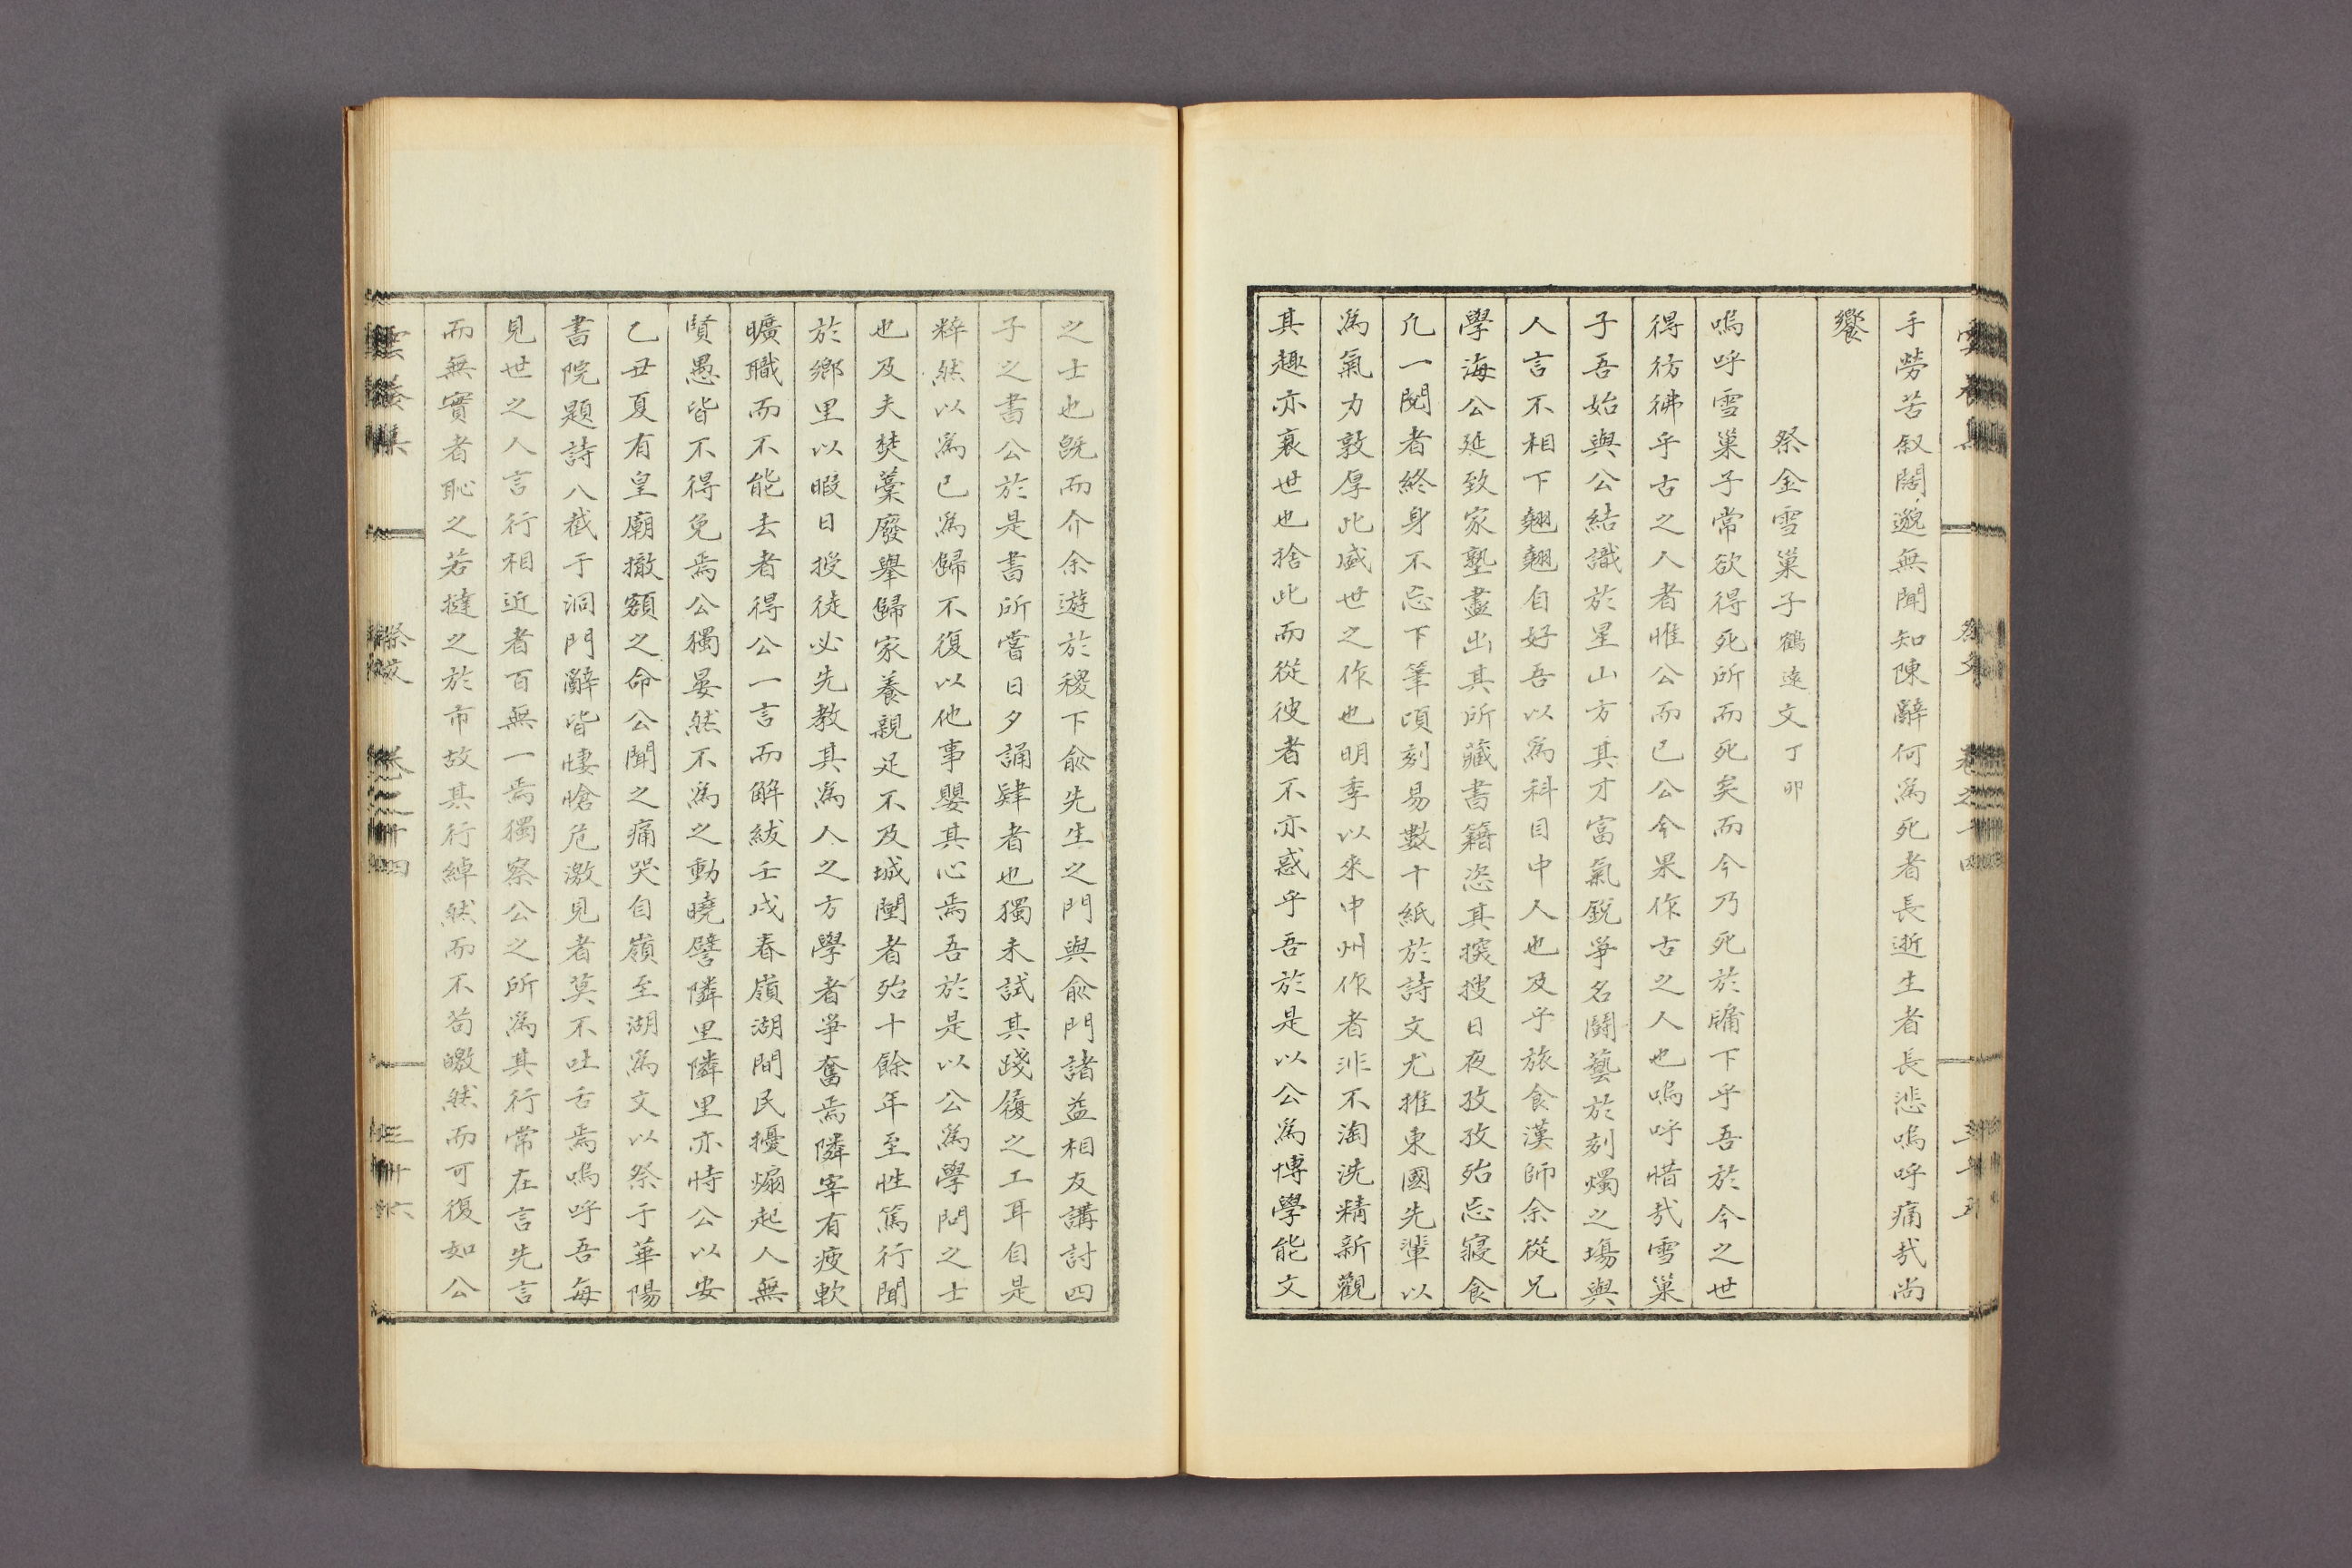 手勞苦叙闊邈無聞知陳辭何爲死者長逝生者長悲嗚呼痛哉尚
饗
祭金雪巢子鶴遠文丁卯
嗚呼雪巢子常欲得死所而死矣而今乃死於牖下乎吾於今之世
得彷彿乎古之人者惟公而已公今果作古之人也嗚呼惜哉雪巢
子吾始與公結識於星山方其才富氣銳爭名鬪藝於刻燭之塲與
人言不相下翹翹自好吾以爲科目中人也及乎旅食漢師余從兄
學海公延致家塾盡出其所藏書籍恣其探搜日夜孜孜殆忘寢食
凡一閱者終身不忘下筆頃刻易數十紙於詩文尤推東國先輩以
爲氣力敦厚此盛世之作也明季以來中州作者非不淘洗精新觀
其趣亦衰世也捨此而從彼者不亦惑乎吾於是以公爲博學能文
之士也旣而介余遊於稷下兪先生之門與兪門諸益相友講討四
子之書公於是書所嘗日夕誦肄者也獨未試其踐履之工耳自是
粹然以爲己爲歸不復以他事嬰其心焉吾於是以公爲學問之士
也及夫焚藁廢舉歸家養親足不及城闉者殆十餘年至性篤行聞
於鄕里以暇日授徒必先教其爲人之方學者爭奮焉隣宰有疲軟
曠職而不能去者得公一言而解紱壬戌春嶺湖間民擾煽起人無
賢愚皆不得免焉公獨晏然不爲之動曉譬隣里隣里亦恃公以安
乙丑夏有皇廟撤額之命公聞之痛哭自嶺至湖爲文以祭于華陽
書院題詩八截于洞門辭皆悽愴危激見者莫不吐舌焉嗚呼吾每
見世之人言行相近者百無一焉獨察公之所爲其行常在言先言
而無實者恥之若撻之於市故其行綽然而不苟皦然而可復如公
祭文 卷之十四 三十六